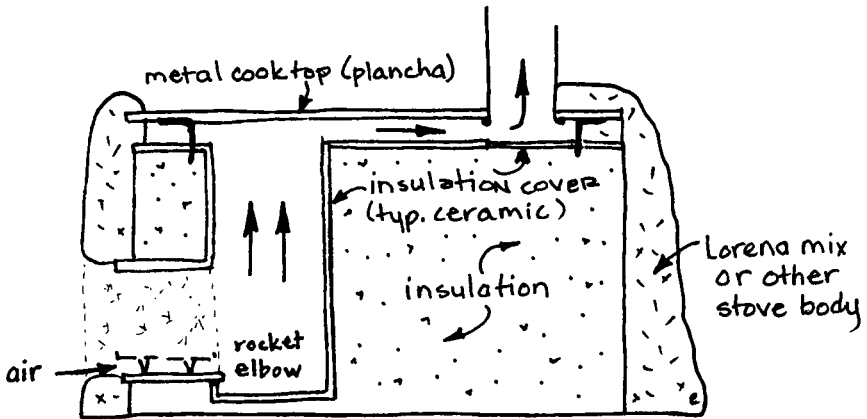 metal cooktop (plancha)
insulation cover
(typ. ceramic)
insulation
Lorena mix
or other
stove body
air
rocket
elbow